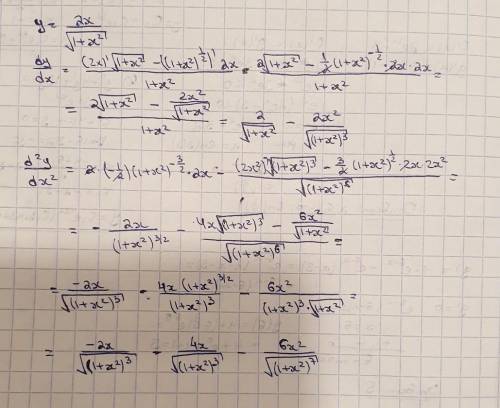 y = 2x / √(1+x²)
dy/dx = ((2x)'√(1+x²) - ((1+x²)^(1/2))' 2x) / (1+x²) = (2√(1+x²) - 1/2 (1+x²)^(-1/2) · 2x · 2x) / (1+x²) =
= (2√(1+x²) - 2x²/√(1+x²)) / (1+x²) = 2/√(1+x²) - 2x²/√((1+x²)³)
d²y/dx² = 2 · (-1/2)(1+x²)^(-3/2) · 2x - ((2x²)'√((1+x²)³) - 3/2 (1+x²)^(1/2) · 2x · 2x²) / √((1+x²)⁶) =
= - 2x/(1+x²)^(3/2) - (4x√((1+x²)³) - 6x²/√(1+x²)) / √((1+x²)⁶) =
= -2x/√((1+x²)³) - 4x(1+x²)^(3/2)/(1+x²)³ - 6x²/((1+x²)³ · √(1+x²)) =
= -2x/√((1+x²)³) - 4x/√((1+x²)³) - 6x²/√((1+x²)⁷)